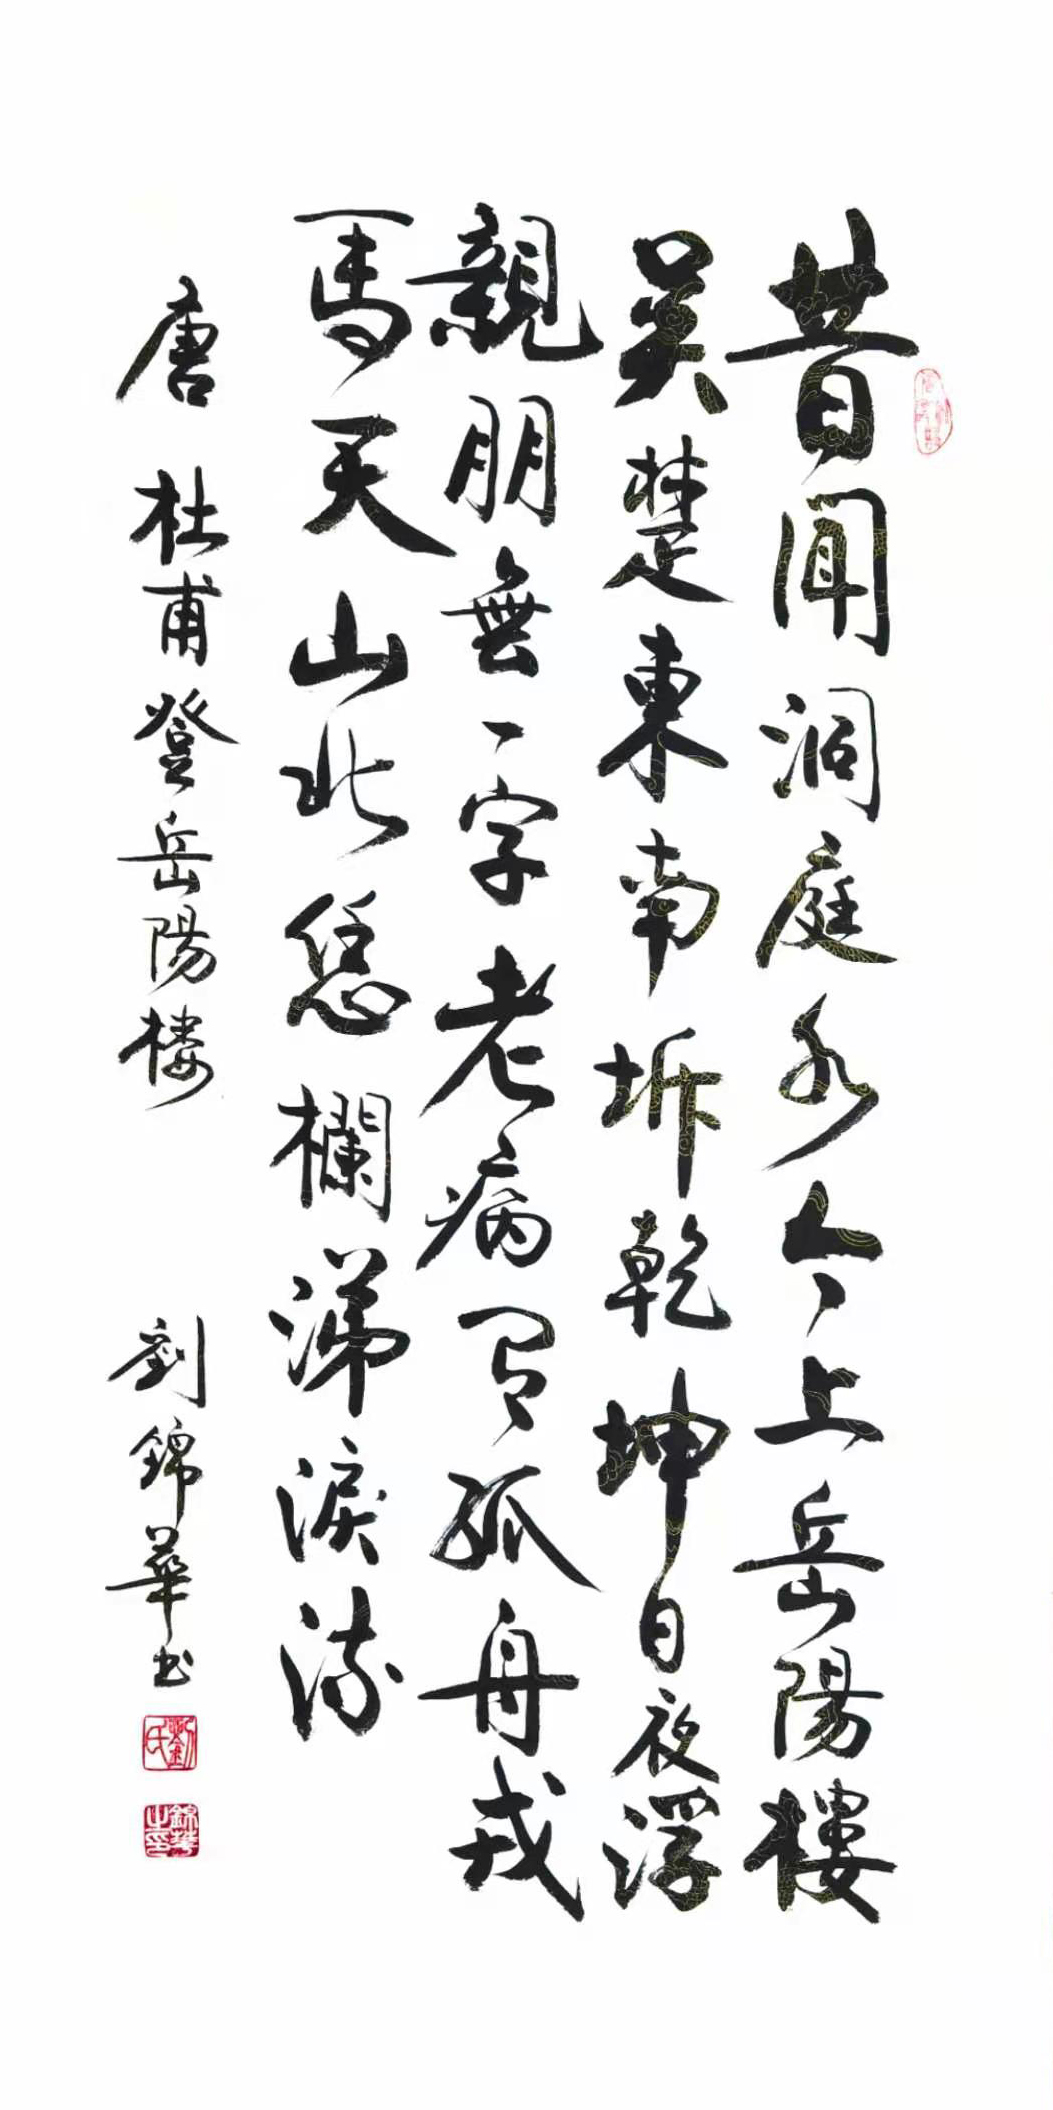 昔聞洞庭水今上岳陽樓
吳楚東南坼乾坤日夜浮
親朋無一字老病有孤舟戎
馬天山北恁欄涕淚流
唐 杜甫登岳陽樓 劉錦華书
劉氏
錦華之印